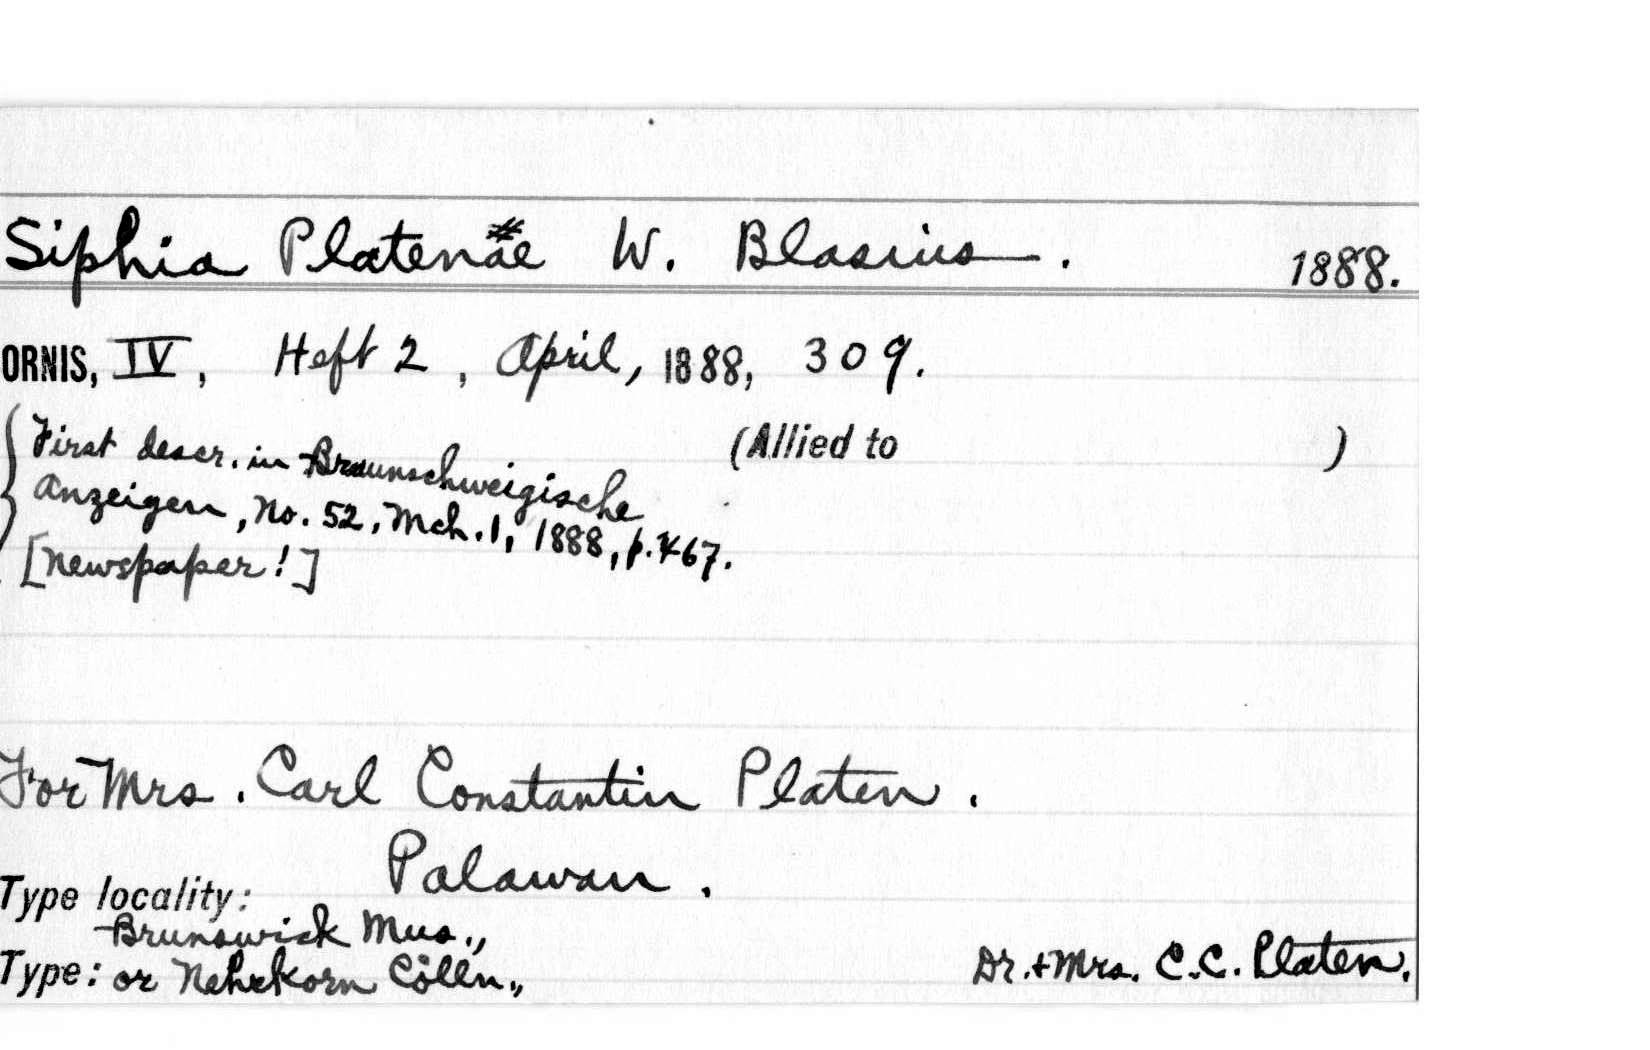 Siphia Platenae# W. Blasius. 1888.
ORNIS, IV, Heft 2, April, 1888, 309.
First descr. in Braunschweigische (Allied to )
Anzeigen, No. 52, Mch. 1, 1888, p. 467.
[Newspaper!]
For Mrs. Carl Constantin Platen.
Type locality: Palawan.
Brunswick Mus.,
Type: or Nehrkorn Colln., Dr. + Mrs. C. C. Platen.